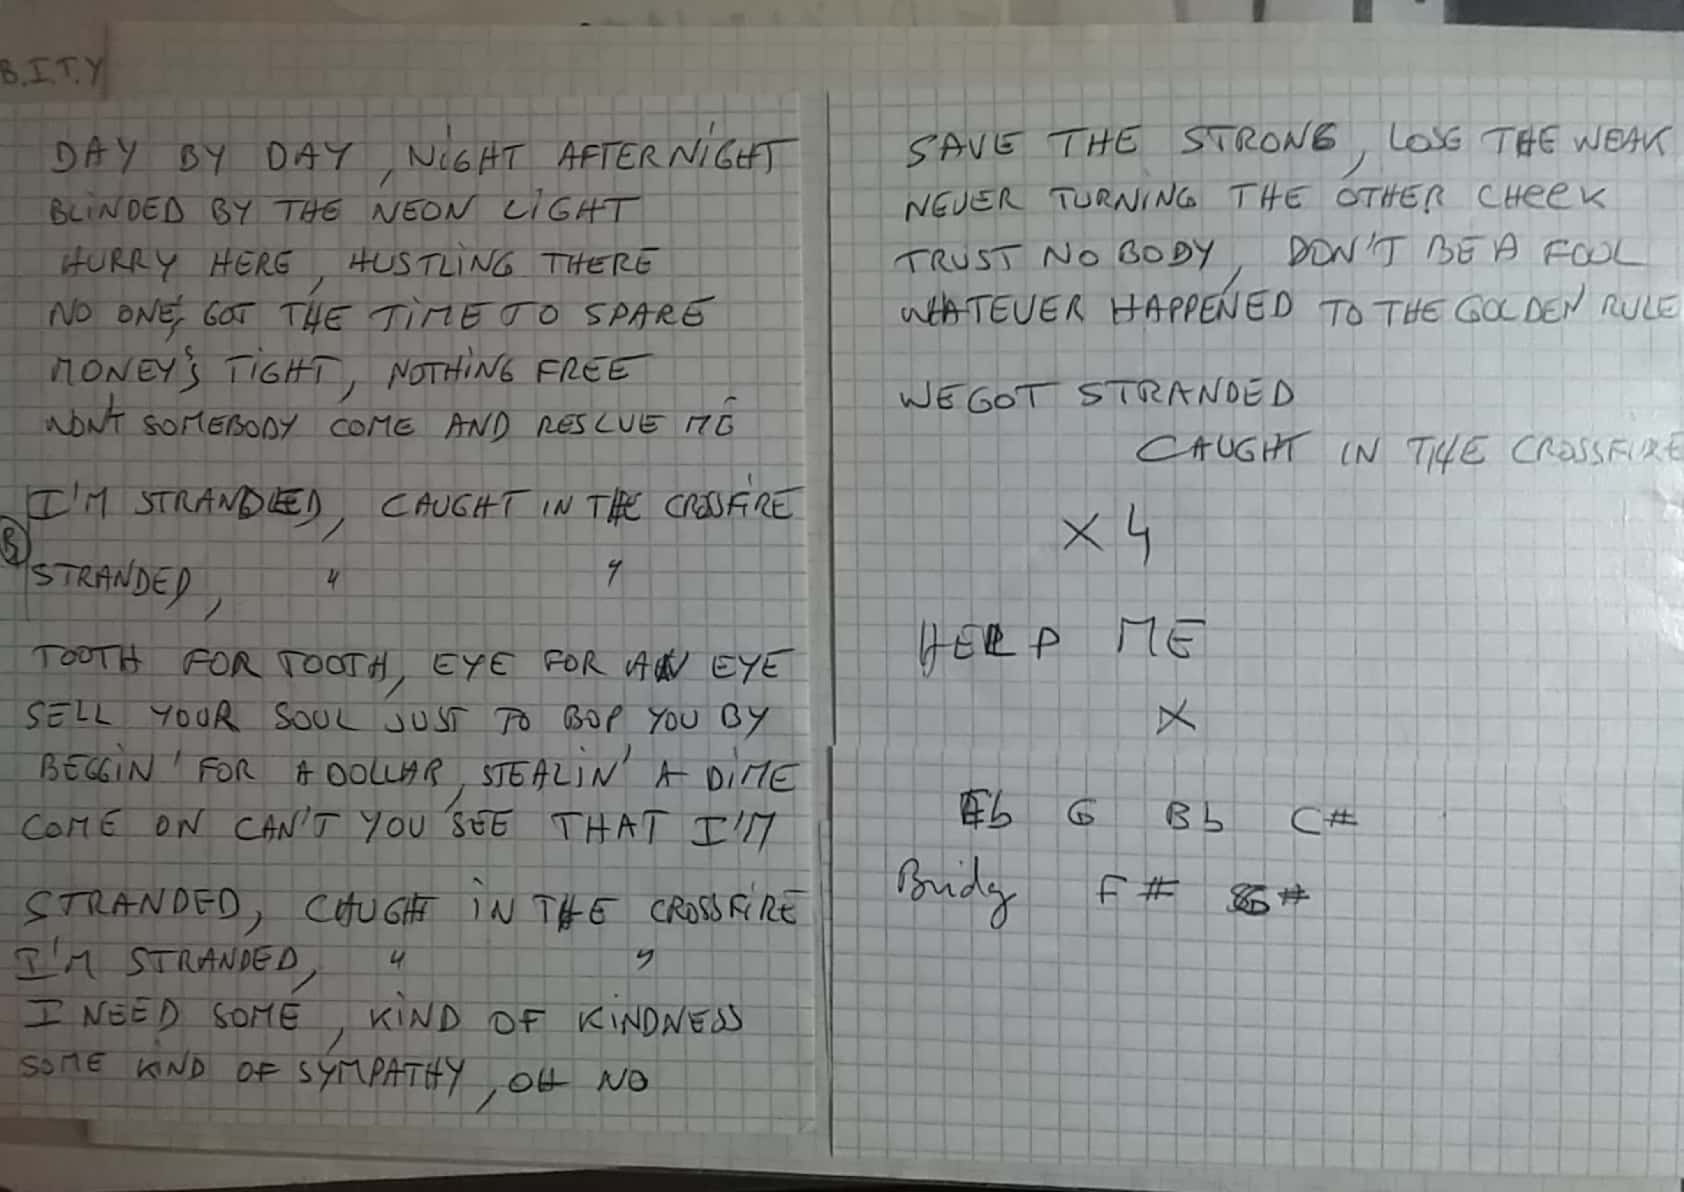 B.I.T.Y
DAY BY DAY, NIGHT AFTER NIGHT
BLINDED BY THE NEON LIGHT
HURRY HERE, HUSTLING THERE
NO ONE'S GOT THE TIME TO SPARE
MONEY'S TIGHT, NOTHING FREE
WON'T SOMEBODY COME AND RESCUE ME
I'M STRANDED, CAUGHT IN THE CROSSFIRE
STRANDED, " "
TOOTH FOR TOOTH, EYE FOR AN EYE
SELL YOUR SOUL JUST TO BOP YOU BY
BEGGIN' FOR A DOLLAR, STEALIN' A DIME
COME ON CAN'T YOU SEE THAT I'M
STRANDED, CAUGHT IN THE CROSSFIRE
I'M STRANDED, " "
I NEED SOME, KIND OF KINDNESS
SOME KIND OF SYMPATHY, OH NO
SAVE THE STRONG, LOSE THE WEAK
NEVER TURNING THE OTHER CHEEK
TRUST NO BODY, DON'T BE A FOOL
WHATEVER HAPPENED TO THE GOLDEN RULE
WE GOT STRANDED
CAUGHT IN THE CROSSFIRE
X 4
HELP ME
X
Eb G Bb C#
Bridg F# G#